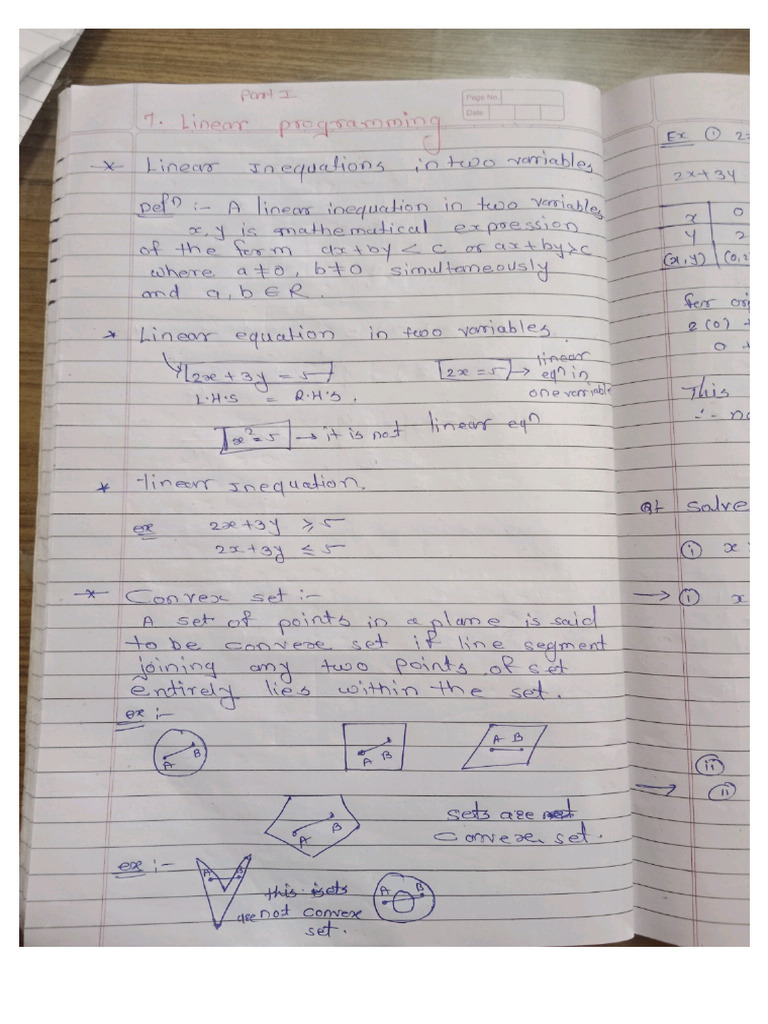 Part I
Page No.
Date
7. Linear programming
* Linear Inequations in two variables
Defⁿ :- A linear inequation in two variables
x, y is mathematical expression
of the form ax+by < c or ax+by > c
where a ≠ 0, b ≠ 0 simultaneously
and a, b ∈ R.
* Linear equation in two variables.
2x + 3y = 5
L.H.S = R.H.S.
2x = 5 → linear eqⁿ in one variable
x² = 5 → it is not linear eqⁿ
* linear Inequation.
ex 2x+3y ≥ 5
2x+3y ≤ 5
* Convex set :-
A set of points in a plane is said
to be convexe set if line segment
joining any two points of set
entirely lies within the set.
ex :-
A B
A B
A B
A B
sets are not
convexe set.
ex :-
A B
this is sets
are not convex
set.
A B
Ex ① 2=
2x+3y
x 0
y 2
(x,y) (0,2
for ori
2(0) +
0 +
This
∴ no
Q1 Solve
① x
→ ① x
ⅱ
→ ⅱ